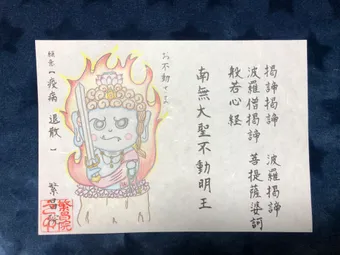 羯諦羯諦　波羅羯諦
波羅僧羯諦　菩提薩婆訶
般若心経
南無大聖不動明王
お不動さま
願意【疫病 退散】